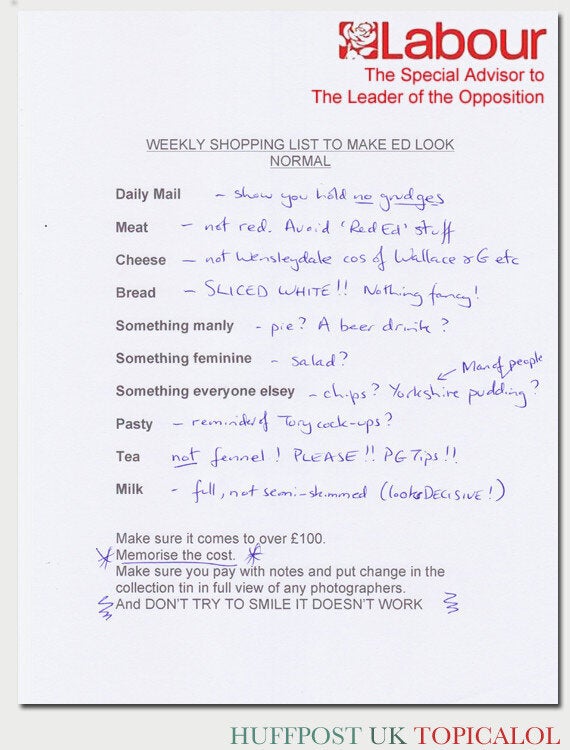 Labour
The Special Advisor to
The Leader of the Opposition
WEEKLY SHOPPING LIST TO MAKE ED LOOK
NORMAL
Daily Mail - show you hold no grudges
Meat - not red. Avoid 'Red Ed' stuff
Cheese - not Wensleydale cos of Wallace & G etc
Bread - SLICED WHITE!! Nothing fancy!
Something manly - pie? A beer drink?
Something feminine - salad?
Man of people
Something everyone elsey - chips? Yorkshire pudding?
Pasty - reminder of Tory cock-ups?
Tea not fennel! PLEASE!! PG Tips!!
Milk - full, not semi-skimmed (looks DECISIVE!)
Make sure it comes to over £100.
Memorise the cost.
Make sure you pay with notes and put change in the
collection tin in full view of any photographers.
And DON'T TRY TO SMILE IT DOESN'T WORK
HUFFPOST UK TOPICALOL